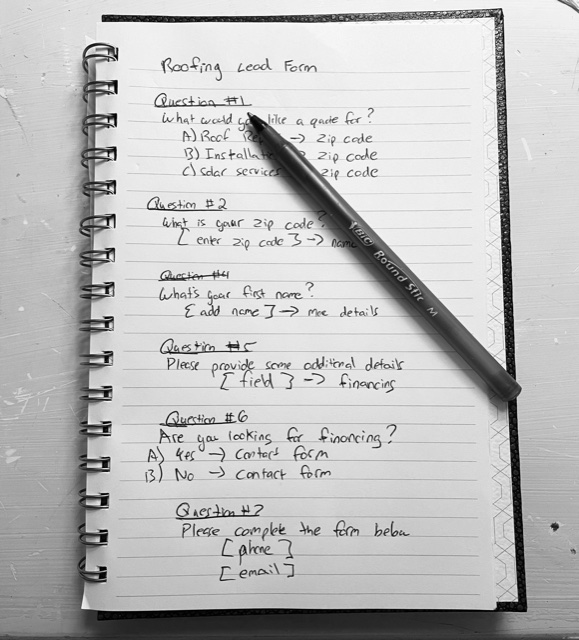 Roofing Lead Form
Question #1
What would you like a quote for?
A) Roof Re → Zip code
B) Installat → Zip code
C) Solar services Zip code
Question #2
What is your zip code?
[enter zip code] → name
Question #4
What's your first name?
[add name] → more details
Question #5
Please provide some additional details
[field] → financing
Question #6
Are you looking for financing?
A) Yes → Contact form
B) No → Contact form
Question #7
Please complete the form below
[phone]
[email]
BIC Round Stic M